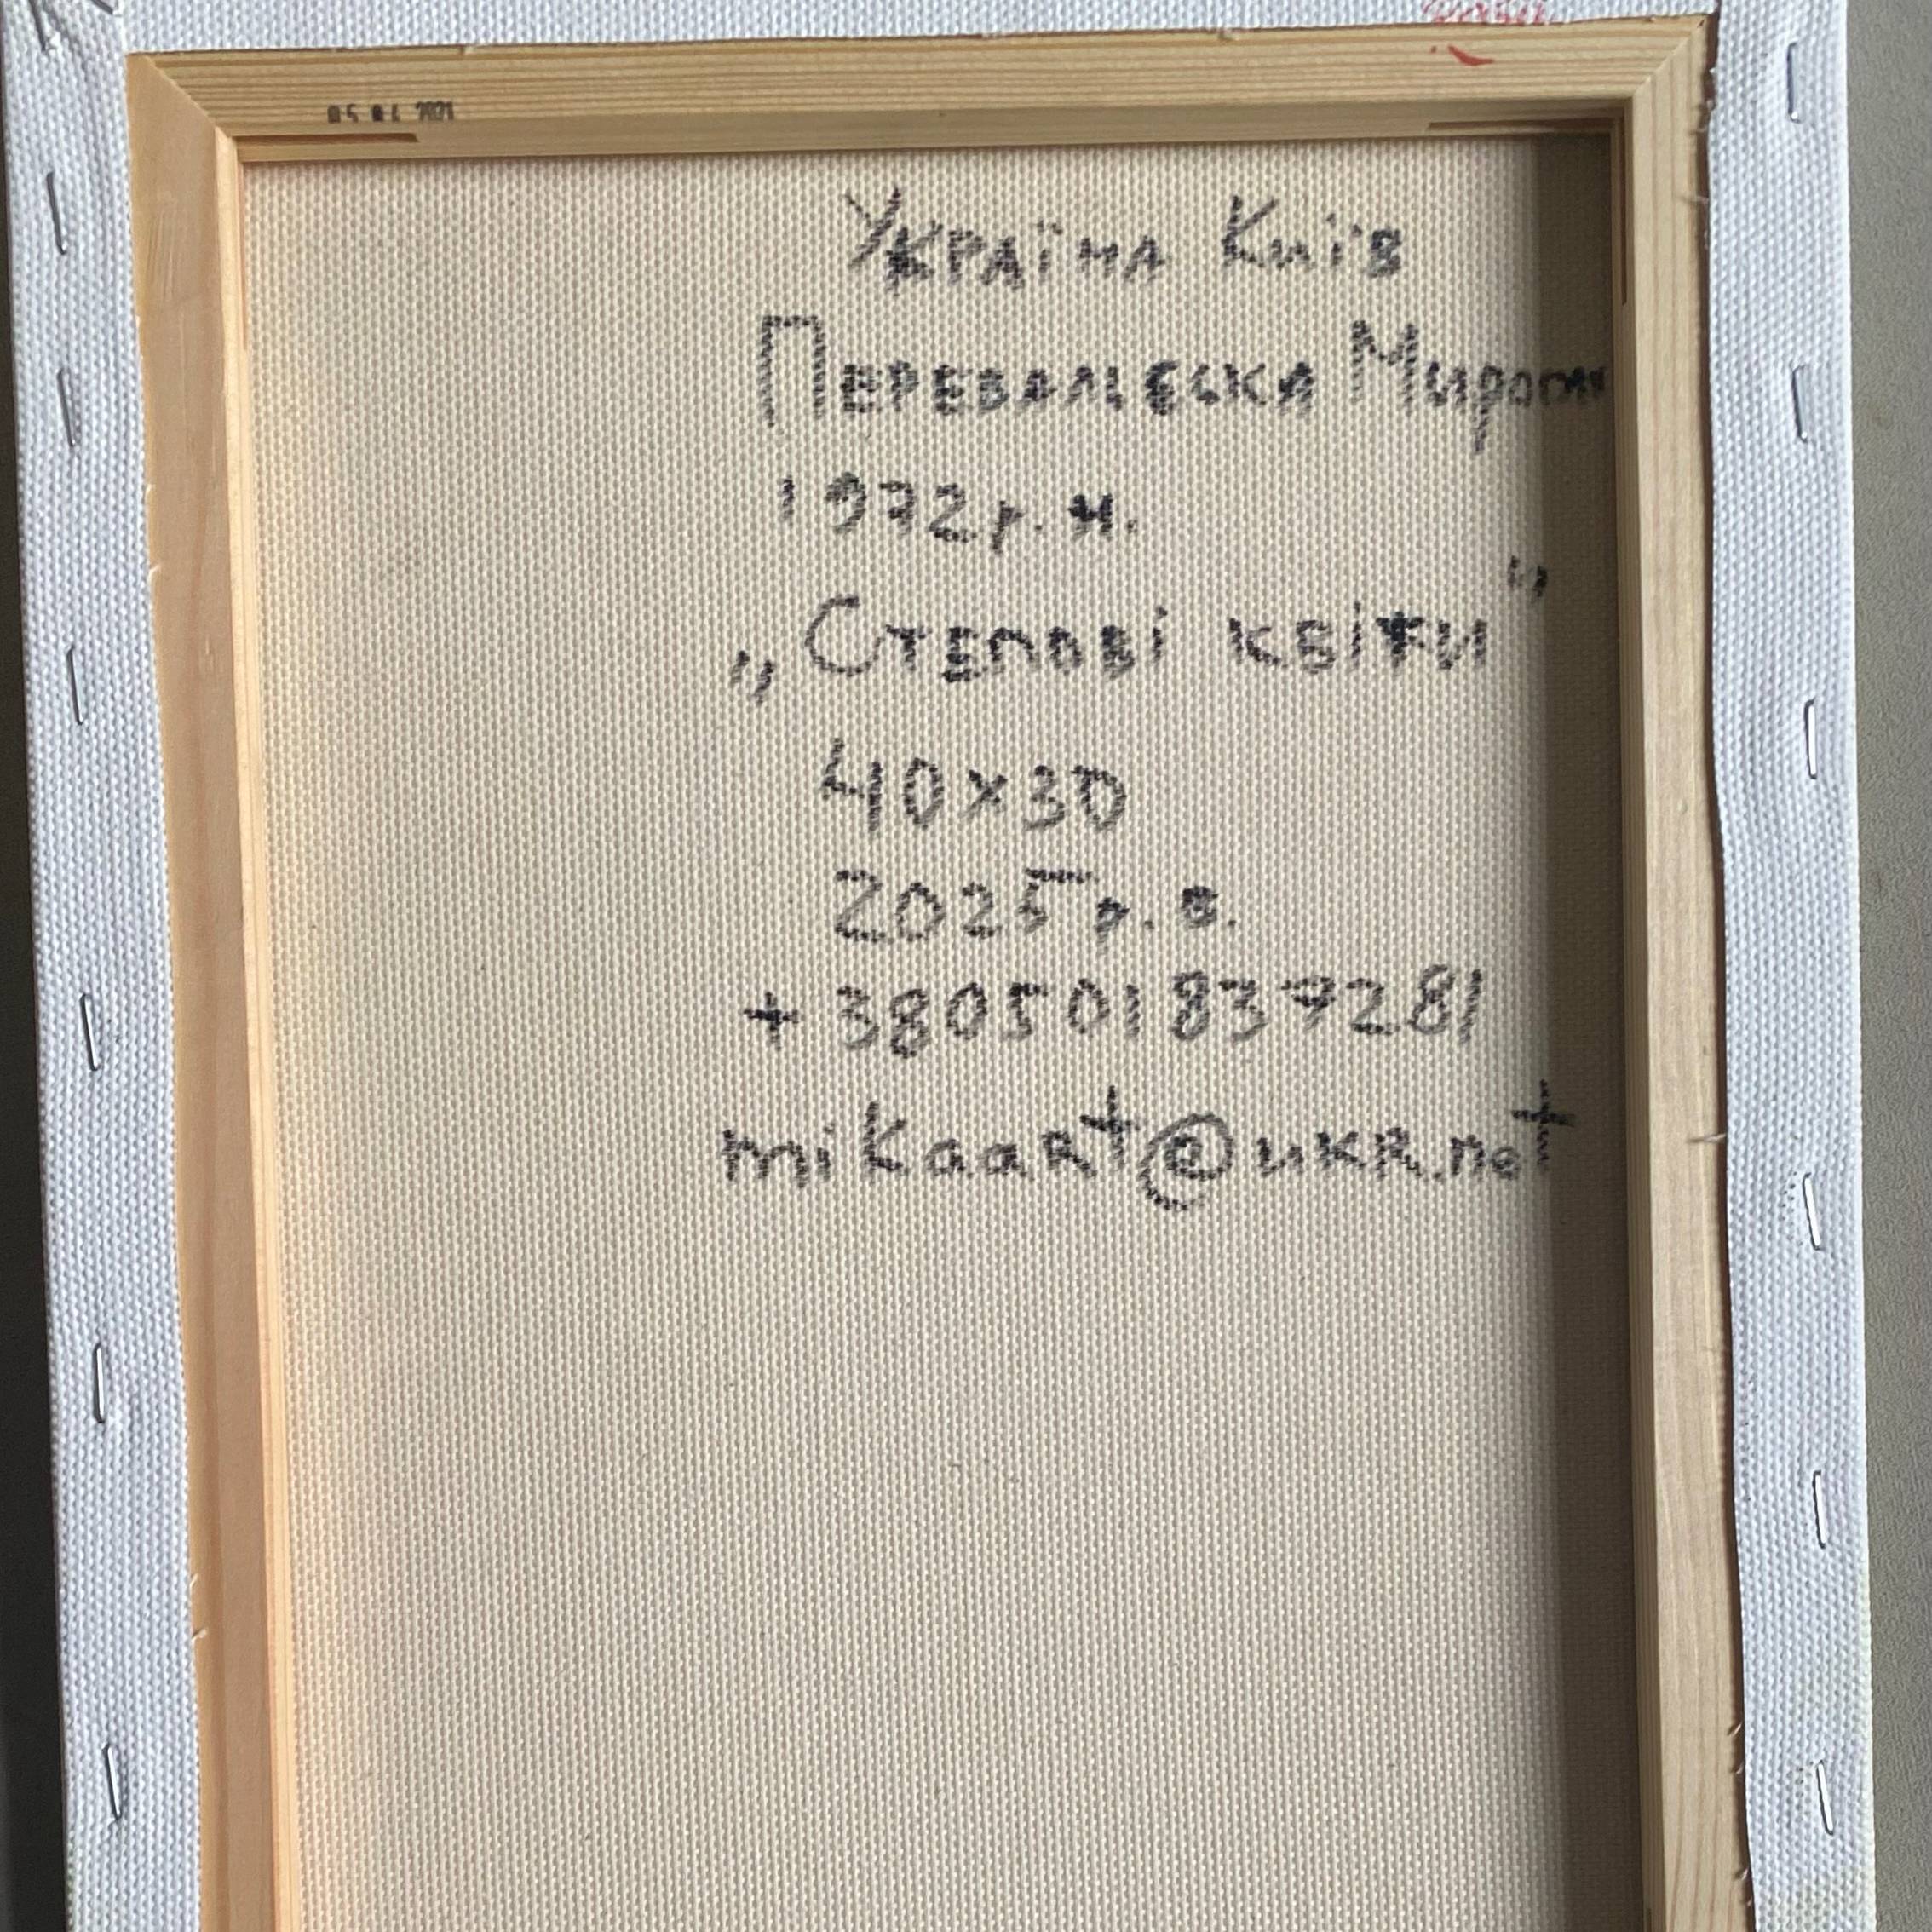 Україна Київ
Перевальська
1972 р. н.
„Степові квіти”
40×30
2025 р. в.
+380501837281
mikaart@ukr.net